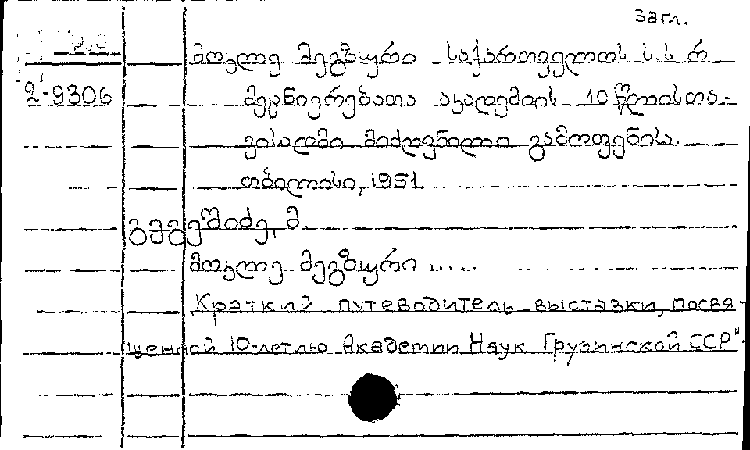 загл.
მოკლე მეგზური საქართველოს ს.ს.რ
2-9306 მეცნიერებათა აკადემიის 10 წლისთა-
ვისადმი მიძღვნილი გამოფენისა.
თბილისი, 1951
მ.
მოკლე მეგზური .....
Краткий путеводитель выставки, посвя-
щенной 10-летию Академии Наук Грузинской ССР"